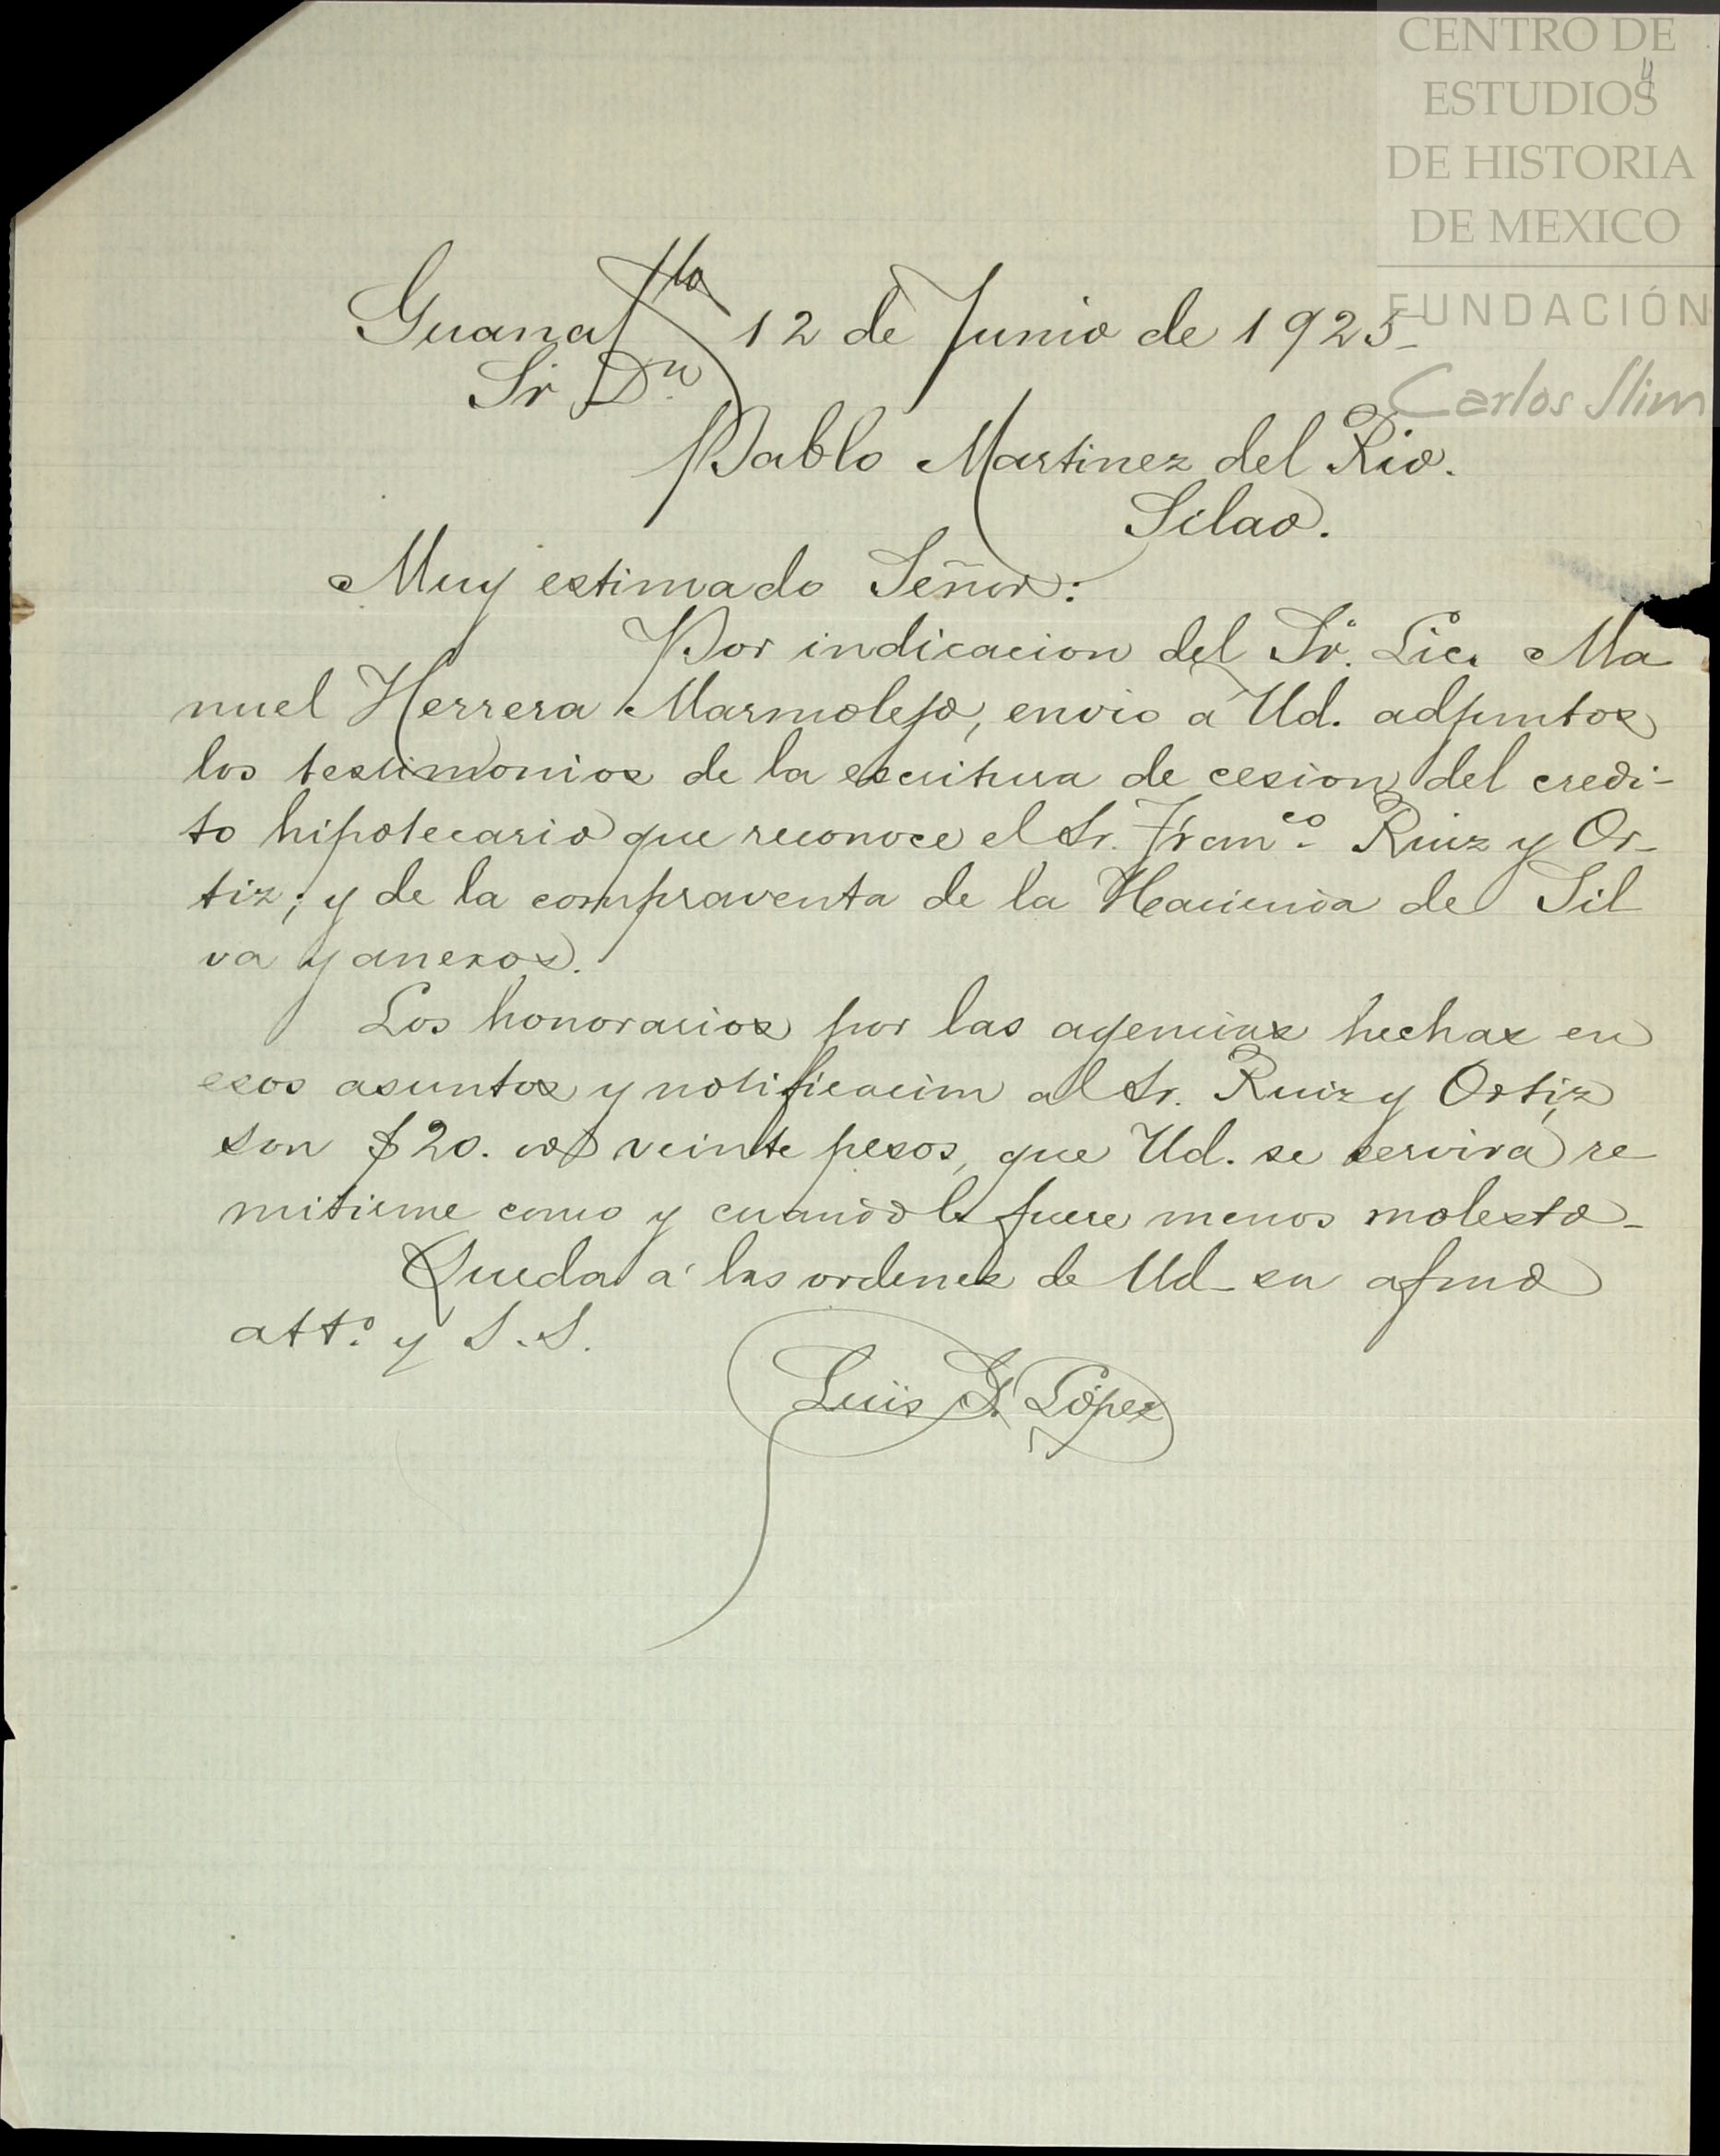 CENTRO DE
ESTUDIOS
DE HISTORIA
DE MEXICO
FUNDACIÓN
Carlos Slim
Guanajto 12 de Junio de 1925-
Sr Dn.
Pablo Martinez del Rio.
Silao.
Muy estimado Señor:
Por indicacion del Sr. Lic. Ma
nuel Herrera Marmolejo, envio a Ud. adjuntos
los testimonios de la escritura de cesion del credi-
to hipotecario que reconoce el Sr. Franco. Ruiz y Or-
tiz; y de la compraventa de la Hacienda de Sil
va y anexos.
Los honorarios por las agencias hechas en
esos asuntos y notificacion al Sr. Ruiz y Ortiz
son $20. oo veinte pesos, que Ud. se servirá re
mitirme como y cuando le fuere menos molesto-
Queda á las ordenes de Ud- su afmo
atto. y S.S.
Luis G. López